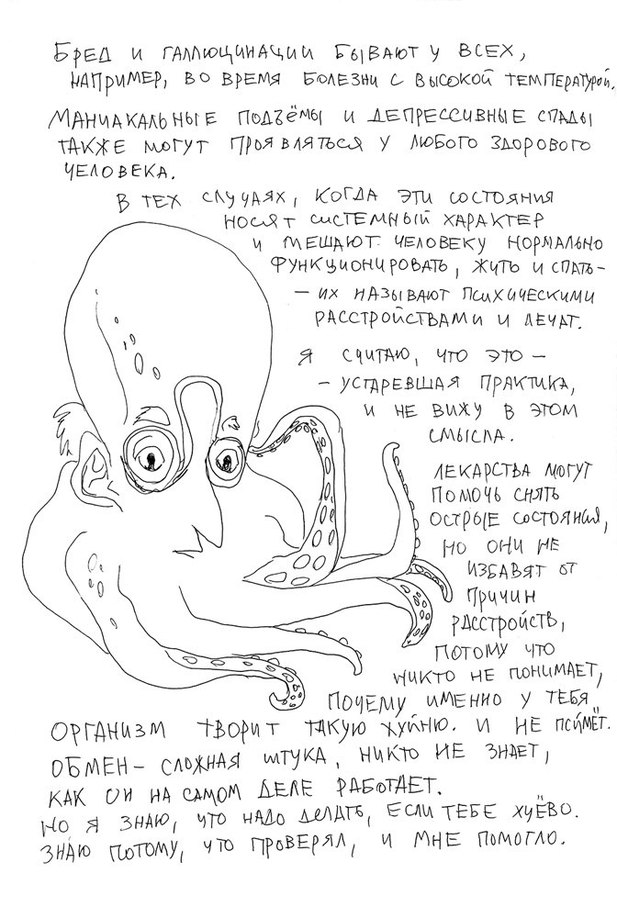 Бред и галлюцинации бывают у всех,
например, во время болезни с высокой температурой.
Маниакальные подъёмы и депрессивные спады
также могут проявляться у любого здорового
человека.
В тех случаях, когда эти состояния
носят системный характер
и мешают человеку нормально
функционировать, жить и спать-
- их называют психическими
расстройствами и лечат.
Я считаю, что это -
- устаревшая практика,
и не вижу в этом
смысла.
Лекарства могут
помочь снять
острые состояния,
но они не
избавят от
причин
расстройств,
потому что
никто не понимает,
почему именно у тебя
организм творит такую хуйню. И не поймёт.
Обмен- сложная штука, никто не знает,
как он на самом деле работает.
Но я знаю, что надо делать, если тебе хуёво.
Знаю потому, что проверял, и мне помогло.